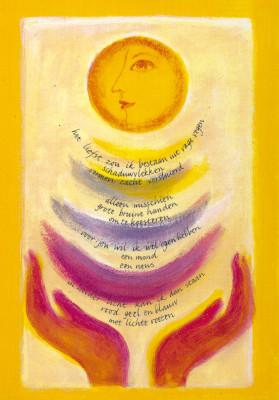 het liefst zou ik bestaan uit vage regen
schaduwvlekken
vormen zacht
alleen misschien
grote bruine handen
om te koesteren
voor jou wil ik wel ogen hebben
een mond
een neus
licht kan ik dan staan
rood geel en blauw
met lichte voeten